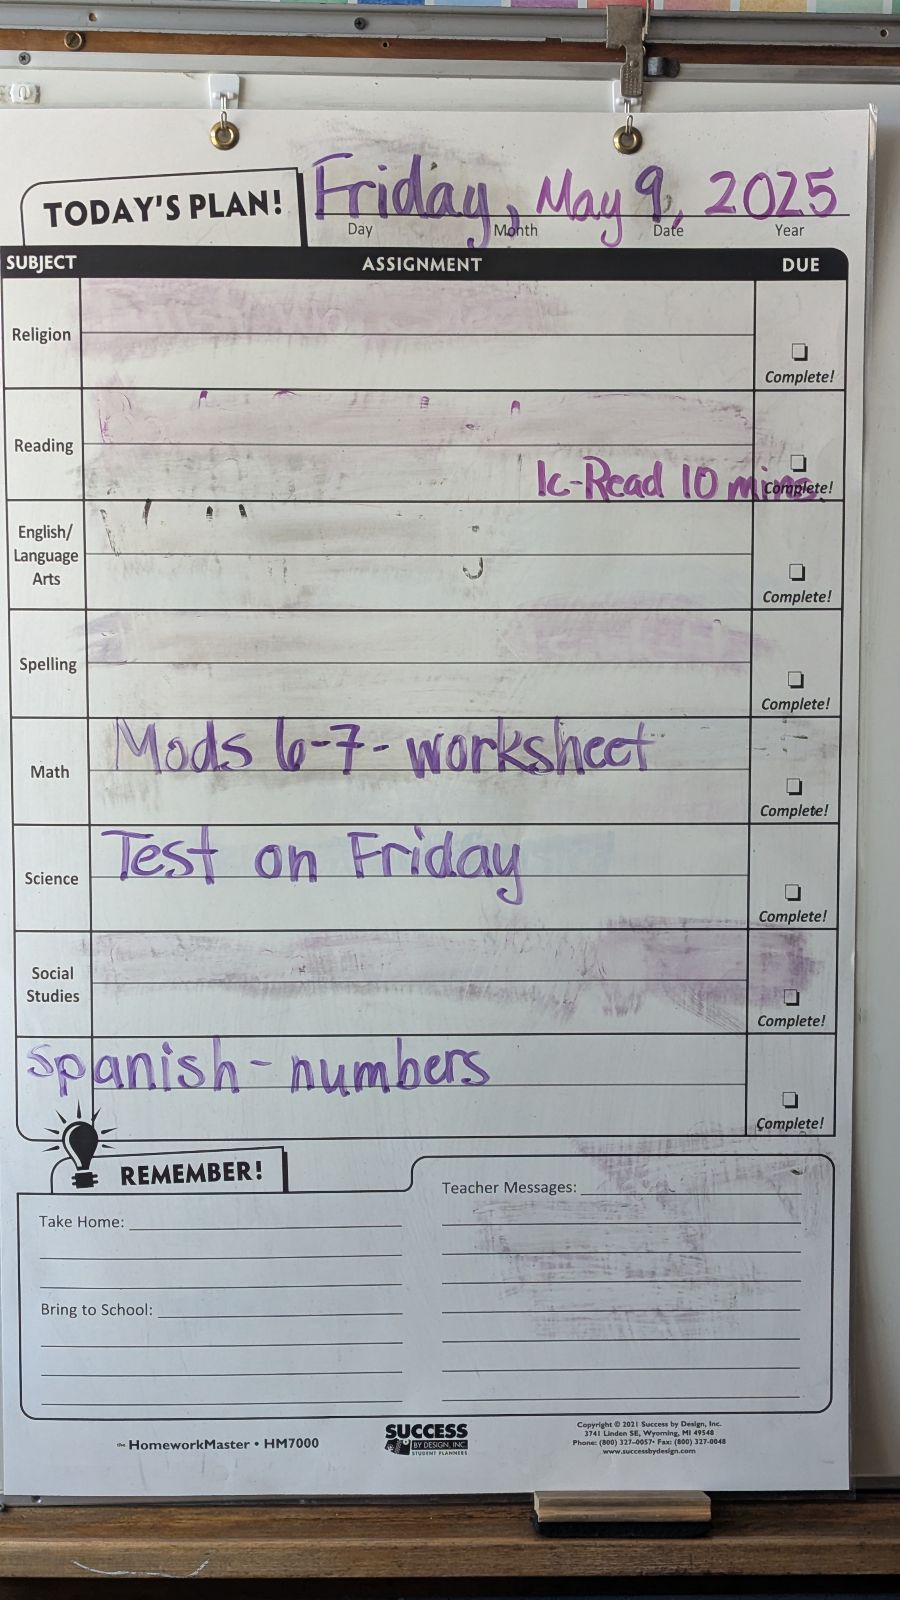 TODAY'S PLAN! Friday, May 9, 2025
Day Month Date Year
SUBJECT ASSIGNMENT DUE
Religion
Complete!
Reading
Ic-Read 10 mins.
Complete!
English/
Language
Arts
Complete!
Spelling
Complete!
Mods 6-7- worksheet
Math
Complete!
Test on Friday
Science
Complete!
Social
Studies
Complete!
Spanish- numbers
Complete!
REMEMBER!
Teacher Messages:
Take Home:
Bring to School:
the HomeworkMaster • HM7000
SUCCESS
BY DESIGN, INC.
STUDENT PLANNERS
Copyright © 2021 Success by Design, Inc.
3741 Linden SE, Wyoming, MI 49548
Phone: (800) 327-0057• Fax: (800) 327-0048
www.successbydesign.com